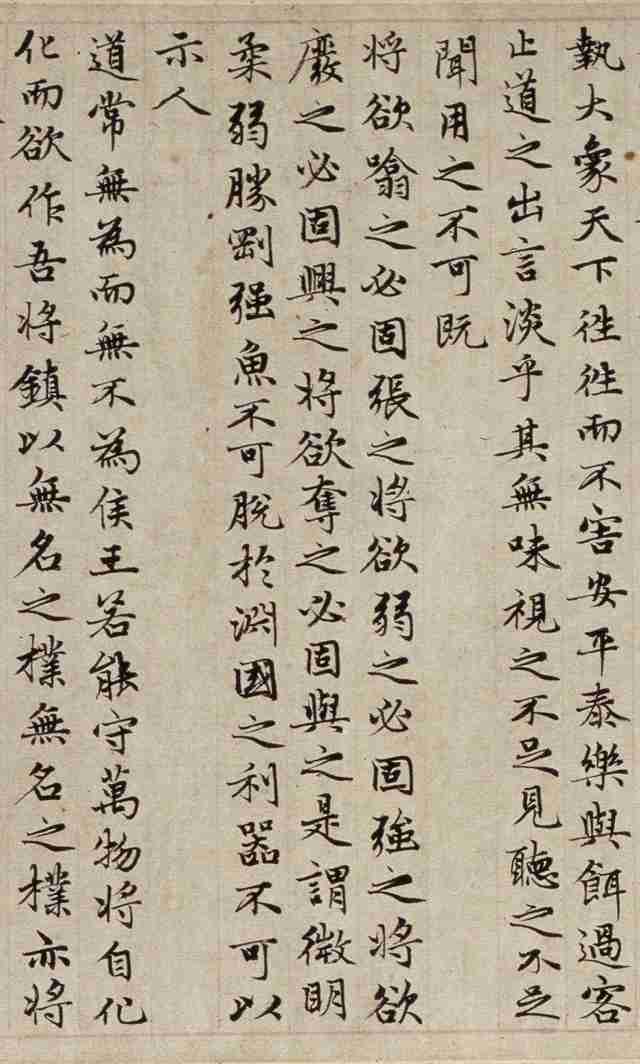 執大象天下徃徃而不害安平泰樂與餌過客
止道之出言淡乎其無味視之不足見聽之不足
聞用之不可既
将欲噏之必固張之将欲弱之必固強之将欲
廢之必固興之将欲奪之必固與之是謂微明
柔弱勝剛强魚不可脫於淵國之利器不可以
示人
道常無為而無不為侯王若能守萬物将自化
化而欲作吾将鎮以無名之樸無名之樸亦将